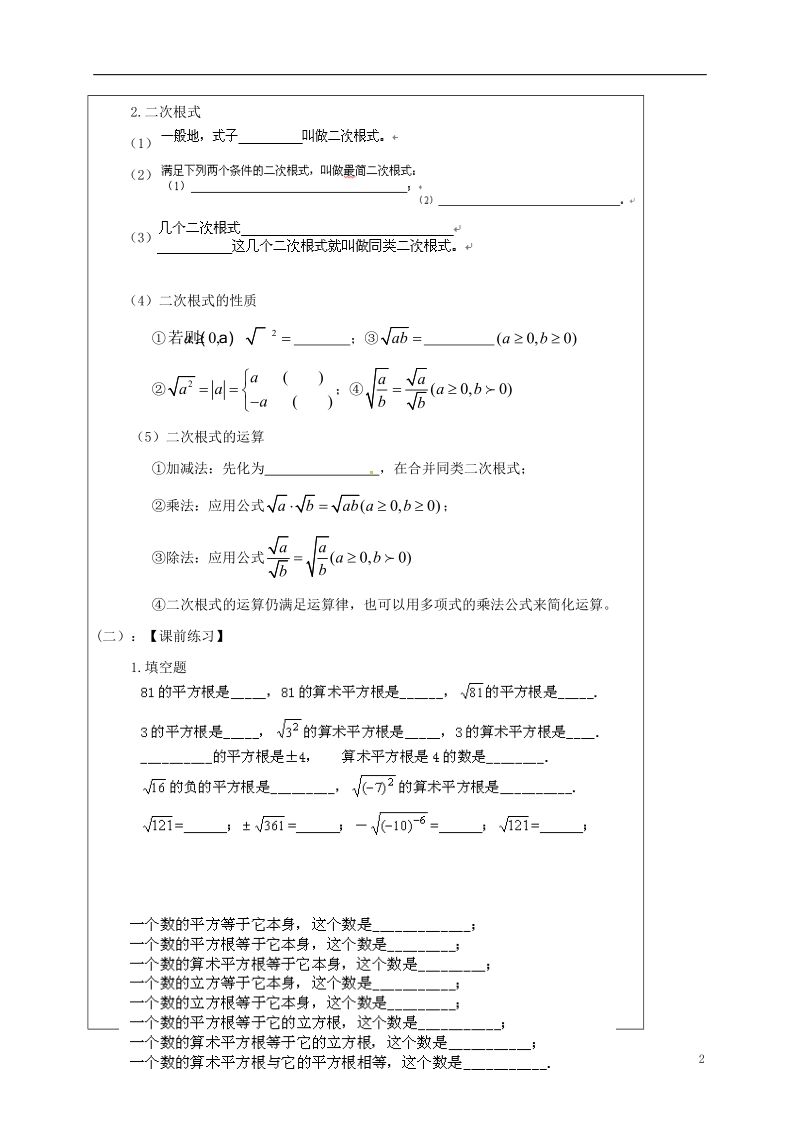 2.二次根式
(1) 一般地，式子_________叫做二次根式。
(2) 满足下列两个条件的二次根式，叫做最简二次根式：
（1）______________________________________；
（2）________________________________．
(3) 几个二次根式______________________________
__________这几个二次根式就叫做同类二次根式。
（4）二次根式的性质
① √ ² = ________；③ √ab = __________ (a ≥ 0, b ≥ 0)
② √a² = |a| = { a （ ） −a （ ） ；④ √(a/b) = √a/√b (a ≥ 0, b ≻ 0)
（5）二次根式的运算
①加减法：先化为________________，在合并同类二次根式；
②乘法：应用公式 √a · √b = √ab (a ≥ 0, b ≥ 0)；
③除法：应用公式 √a/√b = √(a/b) (a ≥ 0, b ≻ 0)
④二次根式的运算仍满足运算律，也可以用多项式的乘法公式来简化运算。
(二)：【课前练习】
1.填空题
81的平方根是_____，81的算术平方根是______，√81的平方根是_____.
3的平方根是_____，√3²的算术平方根是_____，3的算术平方根是____.
__________的平方根是±4， 算术平方根是4的数是________.
√16的负的平方根是_________，√(−7)²的算术平方根是__________.
√121=______；±√361=______；－√(−10)⁻⁶=______；√121=______；
一个数的平方等于它本身，这个数是_____________；
一个数的平方根等于它本身，这个数是_________；
一个数的算术平方根等于它本身，这个数是_________；
一个数的立方等于它本身，这个数是___________；
一个数的立方根等于它本身，这个数是_________；
一个数的平方根等于它的立方根，这个数是___________；
一个数的算术平方根等于它的立方根，这个数是___________；
一个数的算术平方根与它的平方根相等，这个数是___________.
2